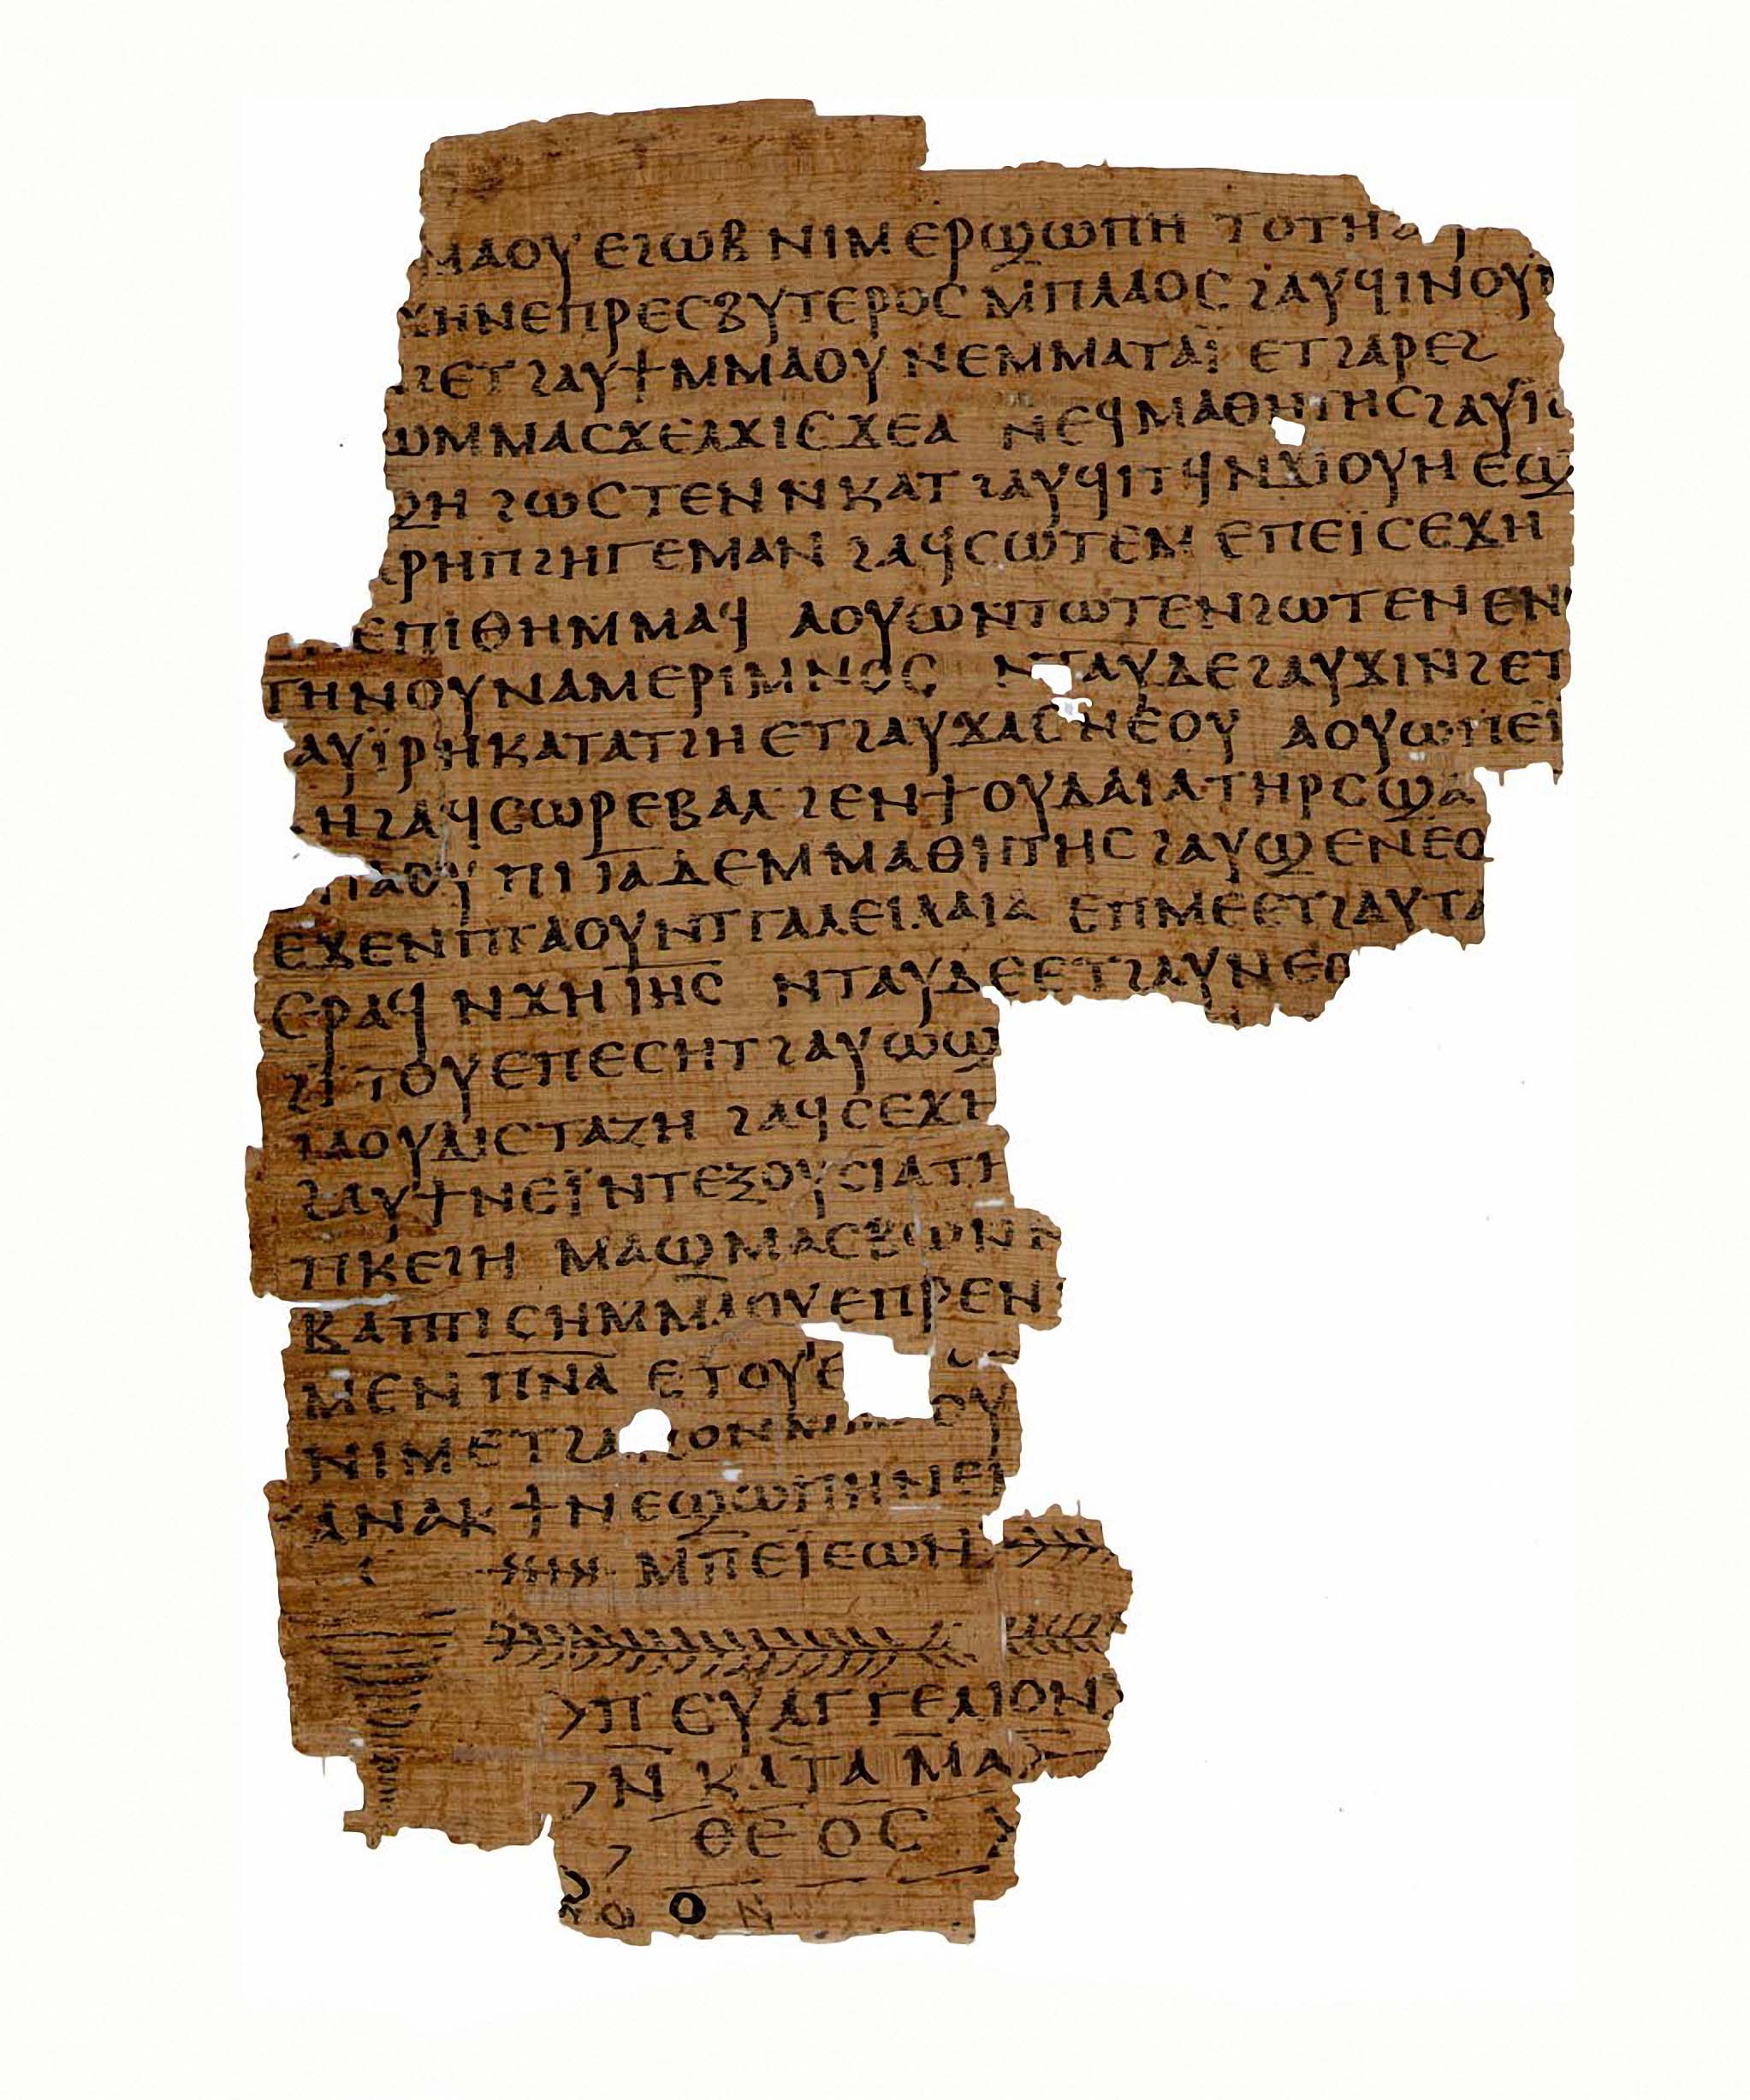 ⲙⲁⲟⲩ ⲉϩⲱⲃ ⲛⲓⲙ ⲉⲣϣⲱⲡⲏ ⲧⲟⲧⲏ
ϫⲏⲛⲉⲡⲣⲉⲥⲃⲩⲧⲉⲣⲟⲥ ⲙⲡⲗⲁⲟⲥ ϩⲁⲩϥⲓⲛⲟⲩ
ϩⲉⲧ ϩⲁⲩϯⲙⲙⲁⲟⲩ ⲛⲉⲙⲙⲁⲧⲁⲓ̈ ⲉⲧϩⲁⲣⲉϩ
ⲱⲙⲙⲁⲥ ϫⲉⲁϫⲓⲥ ϫⲉⲁ ⲛⲉϥⲙⲁⲑⲏⲧⲏⲥ ϩⲁⲩⲓ̈
ϣⲏ ϩⲱⲥⲧⲉⲛ ⲛⲕⲁⲧ ϩⲁⲩϥⲓⲧϥ ⲛϫⲓⲟⲩⲏ ⲉϣ
ⲣⲏⲡϩⲏⲅⲉⲙⲁⲛ ϩⲁϥⲥⲱⲧⲉⲙ ⲉⲡⲉⲓ̈ⲥⲉϫⲏ
ⲉⲡⲓⲑⲏⲙⲙⲁϥ ⲁⲟⲩⲱ ⲛⲧⲱⲧⲉⲛ ϩⲱⲧⲉⲛ ⲉⲛ
ⲧⲏⲛⲟⲩ ⲛⲁⲙⲉⲣⲓⲙⲛⲟⲥ ⲛⲧⲁⲩⲇⲉ ϩⲁⲩϫⲓⲛϩⲉⲧ
ⲁⲩⲓ̈ⲣⲏ ⲕⲁⲧⲁⲧϩⲏ ⲉⲧϩⲁⲩϫⲁⲥ ⲛⲉⲟⲩ ⲁⲟⲩⲱ ⲡⲉⲓ̈
ⲏ ϩⲁϥⲥⲱⲣ ⲉⲃⲁⲗ ϩⲉⲛ ϯⲟⲩⲇⲁⲓⲁ ⲧⲏⲣⲥ ϣⲁ
ⲡⲁⲟⲩ ⲡⲓ ⲓⲁ ⲇⲉ ⲙⲙⲁⲑⲓⲧⲏⲥ ϩⲁⲩϣⲉⲛⲉⲟ
ⲉϫⲉⲛ ⲡⲧⲁⲟⲩ ⲛⲧⲅⲁⲗⲉⲓⲗⲁⲓⲁ ⲉⲡⲙⲉ ⲉⲧϩⲁⲩⲧⲁ
ⲉⲣⲁϥ ⲛϫⲏ ⲓⲏⲥ ⲛⲧⲁⲩⲇⲉ ⲉⲧϩⲁⲩⲛⲉⲟ
ϩⲓⲧⲟⲩ ⲉⲡⲉⲥⲏⲧ ϩⲁⲩⲱϣ
ϩⲁⲟⲩⲇⲓⲥⲧⲁⲍⲏ ϩⲁϥⲥⲉϫⲏ
ϩⲁⲩϯ ⲛⲉⲓ̈ ⲛⲧⲉⲝⲟⲩⲥⲓⲁ ⲧⲏ
ⲡⲕⲉϩⲏ ⲙⲁϣ ⲙⲁⲥⲃⲱ ⲛ
ⲃⲁⲡⲡⲓⲥⲏ ⲙⲙⲁⲟⲩ ⲉⲡⲣⲉⲛ
ⲙⲉⲛ ⲡⲛⲁ ⲉⲧⲟⲩⲉ
ⲛⲓⲙ ⲉⲧϩⲁ ϩⲟⲛ ⲟⲩ
ⲁⲛⲁⲕ ϯⲛⲉϣⲱⲡⲏ ⲛⲉⲙ
ⲙⲡⲉⲓ̈ⲉⲱⲛ
ⲡⲉⲩⲁⲅⲅⲉⲗⲓⲟⲛ
ⲛⲕⲁⲧⲁ ⲙⲁ
ⲑⲉⲟⲥ